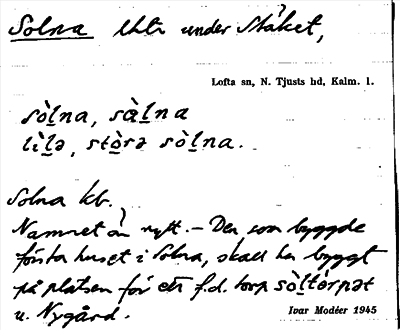 Solna lht under Stäket,
Lofta sn, N. Tjusts hd, Kalm. l.
sò̱lna, sà̱lna
lìlə, stò̱rə sò̱lna.
Solna kb.
Namnet än nytt. – Den som byggde
första huset i Solna, skall ha byggt
på platsen för ett f.d. torp sò̱ltòrpət
u. Nygård.
Ivar Modéer 1945